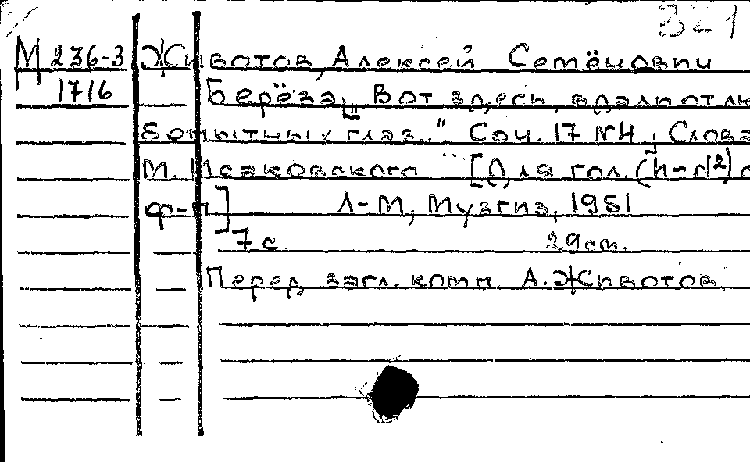 В21
М 236-3 Животов, Алексей Семёнович
1716 Берёза „Вот здесь, вдали от лю
бопытных глаз." Соч. 17 №4. Слова
М. Исаковского [Для гол. (h-d²) с
ф-п.] Л-М, Музгиз, 1951
7 с. 29 см.
Перед загл. комп. А. Животов